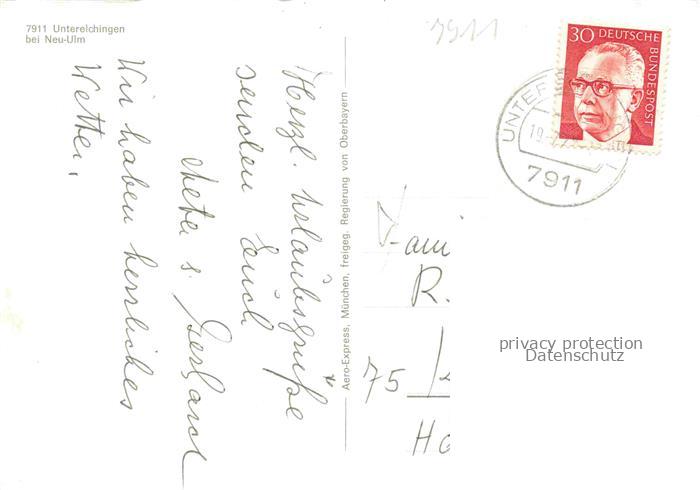 7911 Unterelchingen
bei Neu-Ulm
7911
30 DEUTSCHE BUNDESPOST
UNTER
19.
7911
Herzl. Urlaubsgrüße
senden Euch
Meta u. Gerhard
Wir haben herrliches
Wetter.
Aero-Express, München, freigeg. Regierung von Oberbayern
Fami
R.
75
Ha
privacy protection
Datenschutz